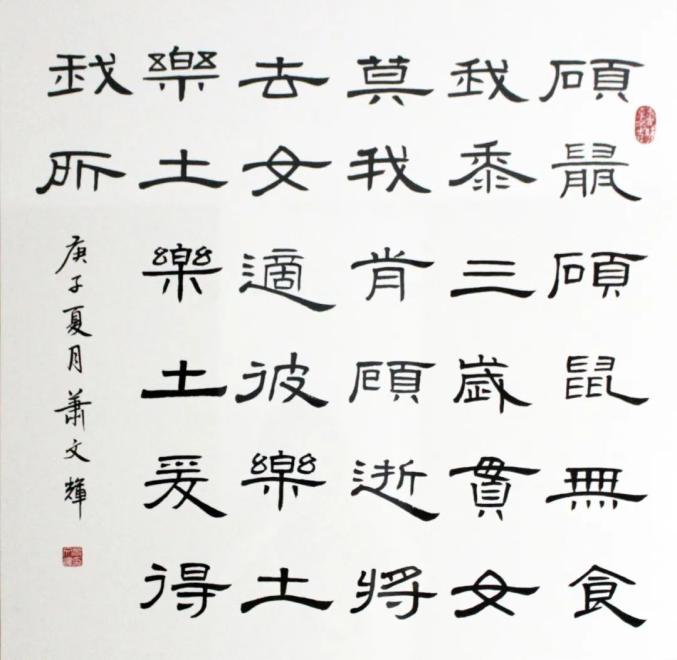 碩鼠碩鼠無食
我黍三歲貫女
莫我肯顧逝將
去女適彼樂土
樂土樂土爰得
我所
庚子夏月蕭文輝